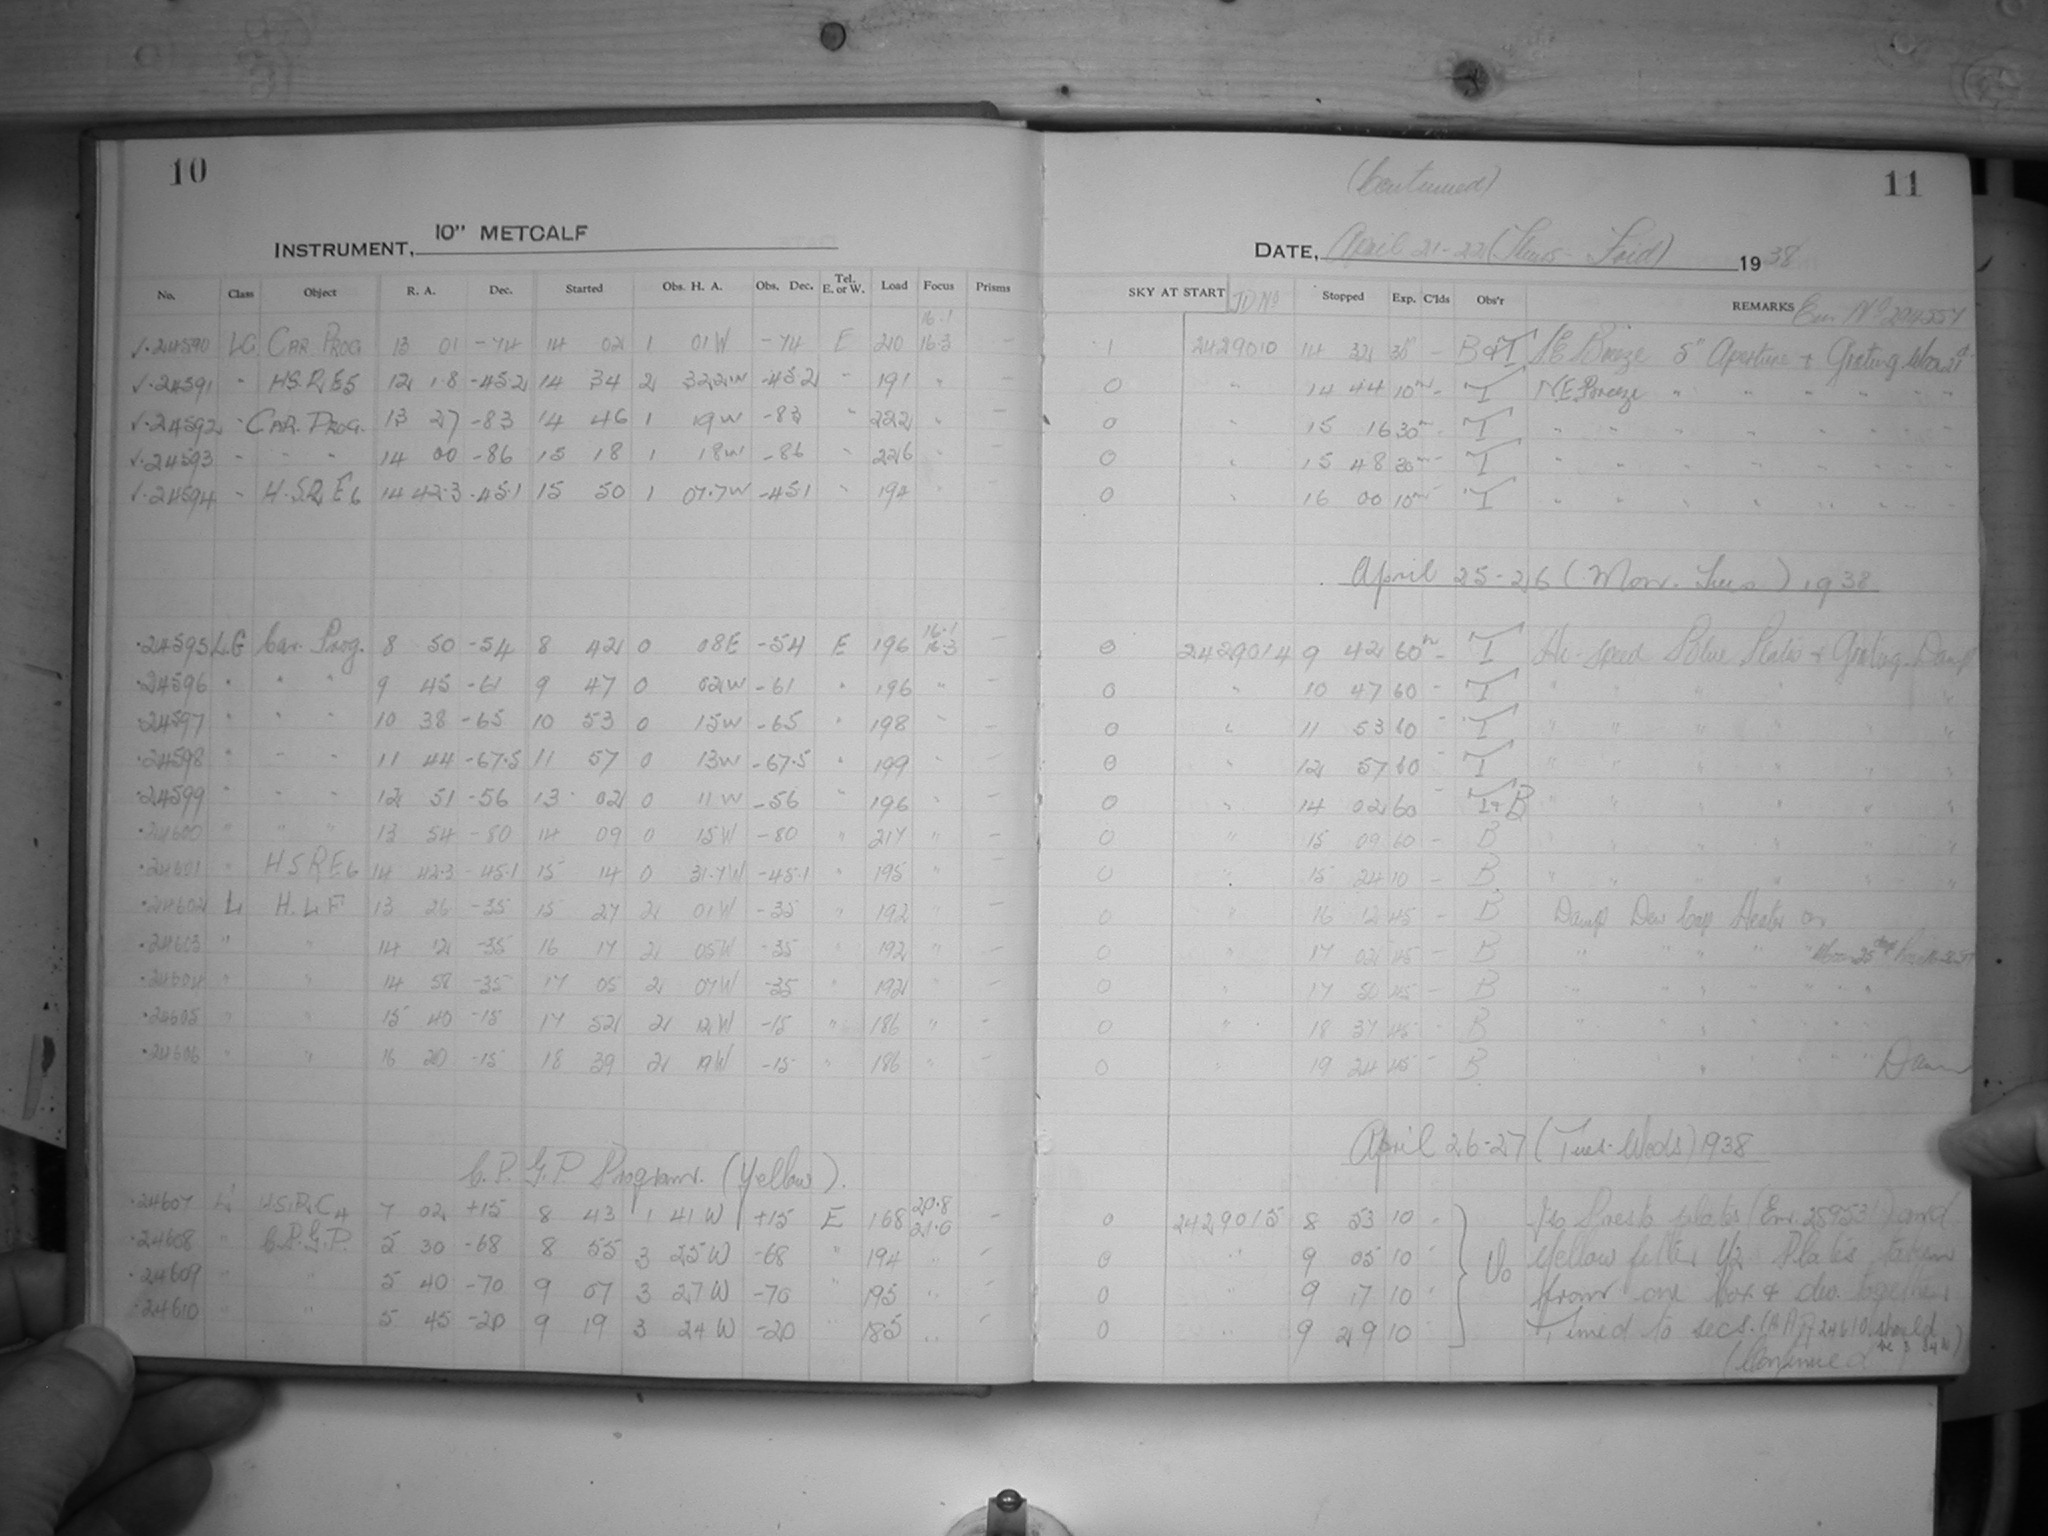 10
INSTRUMENT, 10" METCALF
No. Class Object R. A. Dec. Started Obs. H. A. Obs. Dec. Tel. E. or W. Load Focus Prisms
16.1
✓·24590 LG CAR PROG 13 01 -74 14 02 1 01W -74 E 210 16.3 -
✓·24591 " H.S.R.E5 12 1.8 -45.2 14 34 2 32.2W -45.2 " 191 " -
✓·24592 " CAR. PROG. 13 27 -83 14 46 1 19W -83 " 222 " -
✓·24593 " " " 14 00 -86 15 18 1 18W -86 " 226 "
✓·24594 " H.S.R.E6 14 42.3 -45.1 15 50 1 07.7W -45.1 " 194 " -
16.1
·24595 LG Car. Prog. 8 50 -54 8 42 0 08E -54 E 196 16.3 -
·24596 " " " 9 45 -61 9 47 0 02W -61 " 196 " -
·24597 " " " 10 38 -65 10 53 0 15W -65 " 198 " -
·24598 " " " 11 44 -67.5 11 57 0 13W -67.5 " 199 " -
·24599 " " " 12 51 -56 13 02 0 11W -56 " 196 " -
·24600 " " " 13 54 -80 14 09 0 15W -80 " 217 " -
·24601 " H S R E6 14 42.3 -45.1 15 14 0 31.7W -45.1 " 195 " -
·24602 L H.L.F 13 26 -35 15 27 2 01W -35 " 192 " -
·24603 " " 14 12 -35 16 17 2 05W -35 " 192 " -
·24604 " " 14 58 -35 17 05 2 07W -35 " 192 " -
·24605 " " 15 40 -15 17 52 2 12W -15 " 186 " -
·24606 " " 16 20 -15 18 39 2 19W -15 " 186 " -
C.P.G.P. Program. (Yellow).
·24607 L H.S.R.C4 7 02 +15 8 43 1 41W +15 E 168 20.8 21.0 -
·24608 " C.P.G.P. 5 30 -68 8 55 3 25W -68 " 194 " -
·24609 " " 5 40 -70 9 07 3 27W -70 " 195 " -
·24610 " " 5 45 -20 9 19 3 24W -20 " 185 " -
(Continued) 11
DATE, April 21-22 (Thurs- Frid) 1938
SKY AT START JD No Stopped Exp. C'lds Obs'r REMARKS Em. No
1 2429010 14 32 30m - B&T SE Breeze 5" Aperture & Grating Moon 21d
0 " 14 44 10m - T NE Breeze " " " " " "
0 " 15 16 30m - T " " " " " " " "
0 " 15 48 30m - T " " " " " " " "
0 " 16 00 10m - T " " " " " " " "
April 25-26 (Mon. Tues) 1938
0 2429014 9 42 60m - T Hi-speed Blue Plates & Grating Damp
0 " 10 47 60 - T " " " " " "
0 " 11 53 60 - T " " " " " "
0 " 12 57 60 - T " " " " " "
0 " 14 02 60 - T&B " " " " " "
0 " 15 09 60 - B " " " " " "
0 " 15 24 10 - B " " " " " "
0 " 16 12 45 - B Damp Dew Cap Heater on
0 " 17 02 45 - B " " " " " Moon 25 days
0 " 17 50 45 - B " " " " " " " "
0 " 18 37 45 - B " " " " " " "
0 " 19 24 45 - B " " " " Dawn
April 26-27 (Tues. Weds) 1938
0 2429015 8 53 10 " plates (Em. 289531) and
0 " 9 05 10 " yellow filter Plates taken
0 " 9 17 10 " from one box & dev. together
0 " 9 29 10 Timed to secs. (HA 24610 should be 3 34W)
(Continued